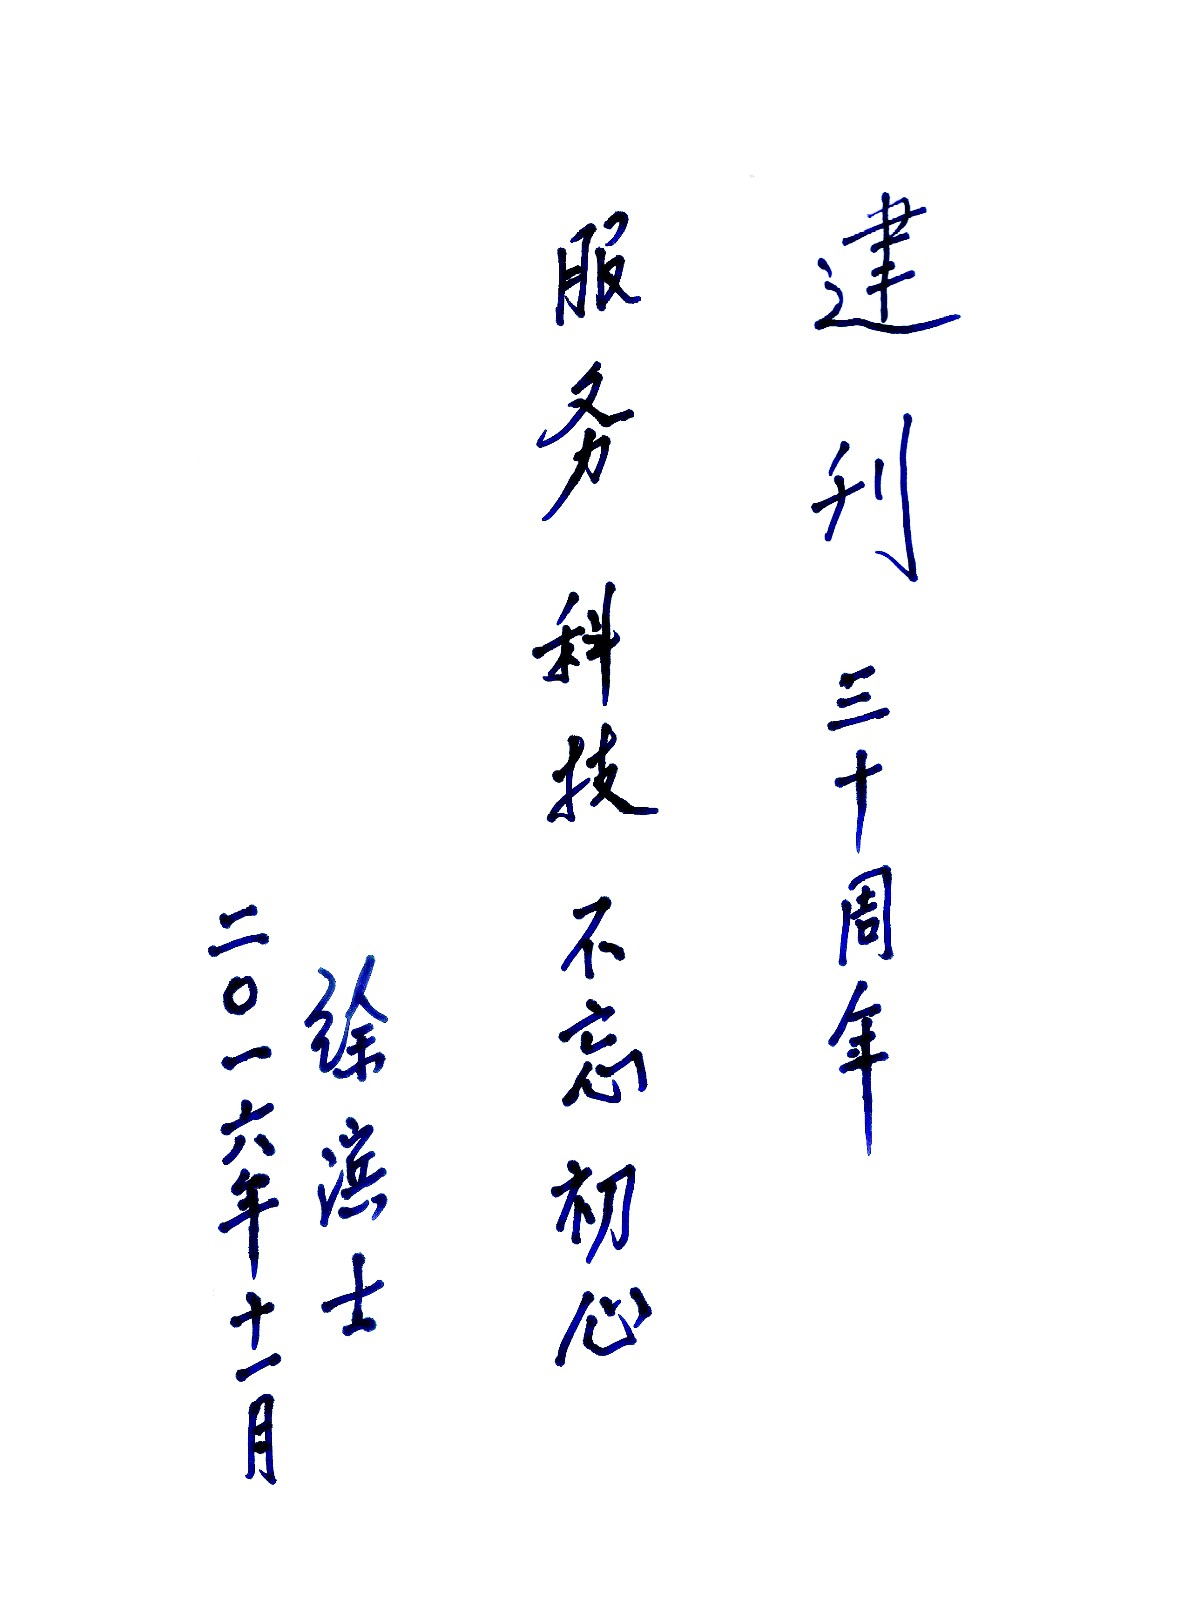 建刊三十周年
服务科技不忘初心
徐滨士
二〇一六年十一月